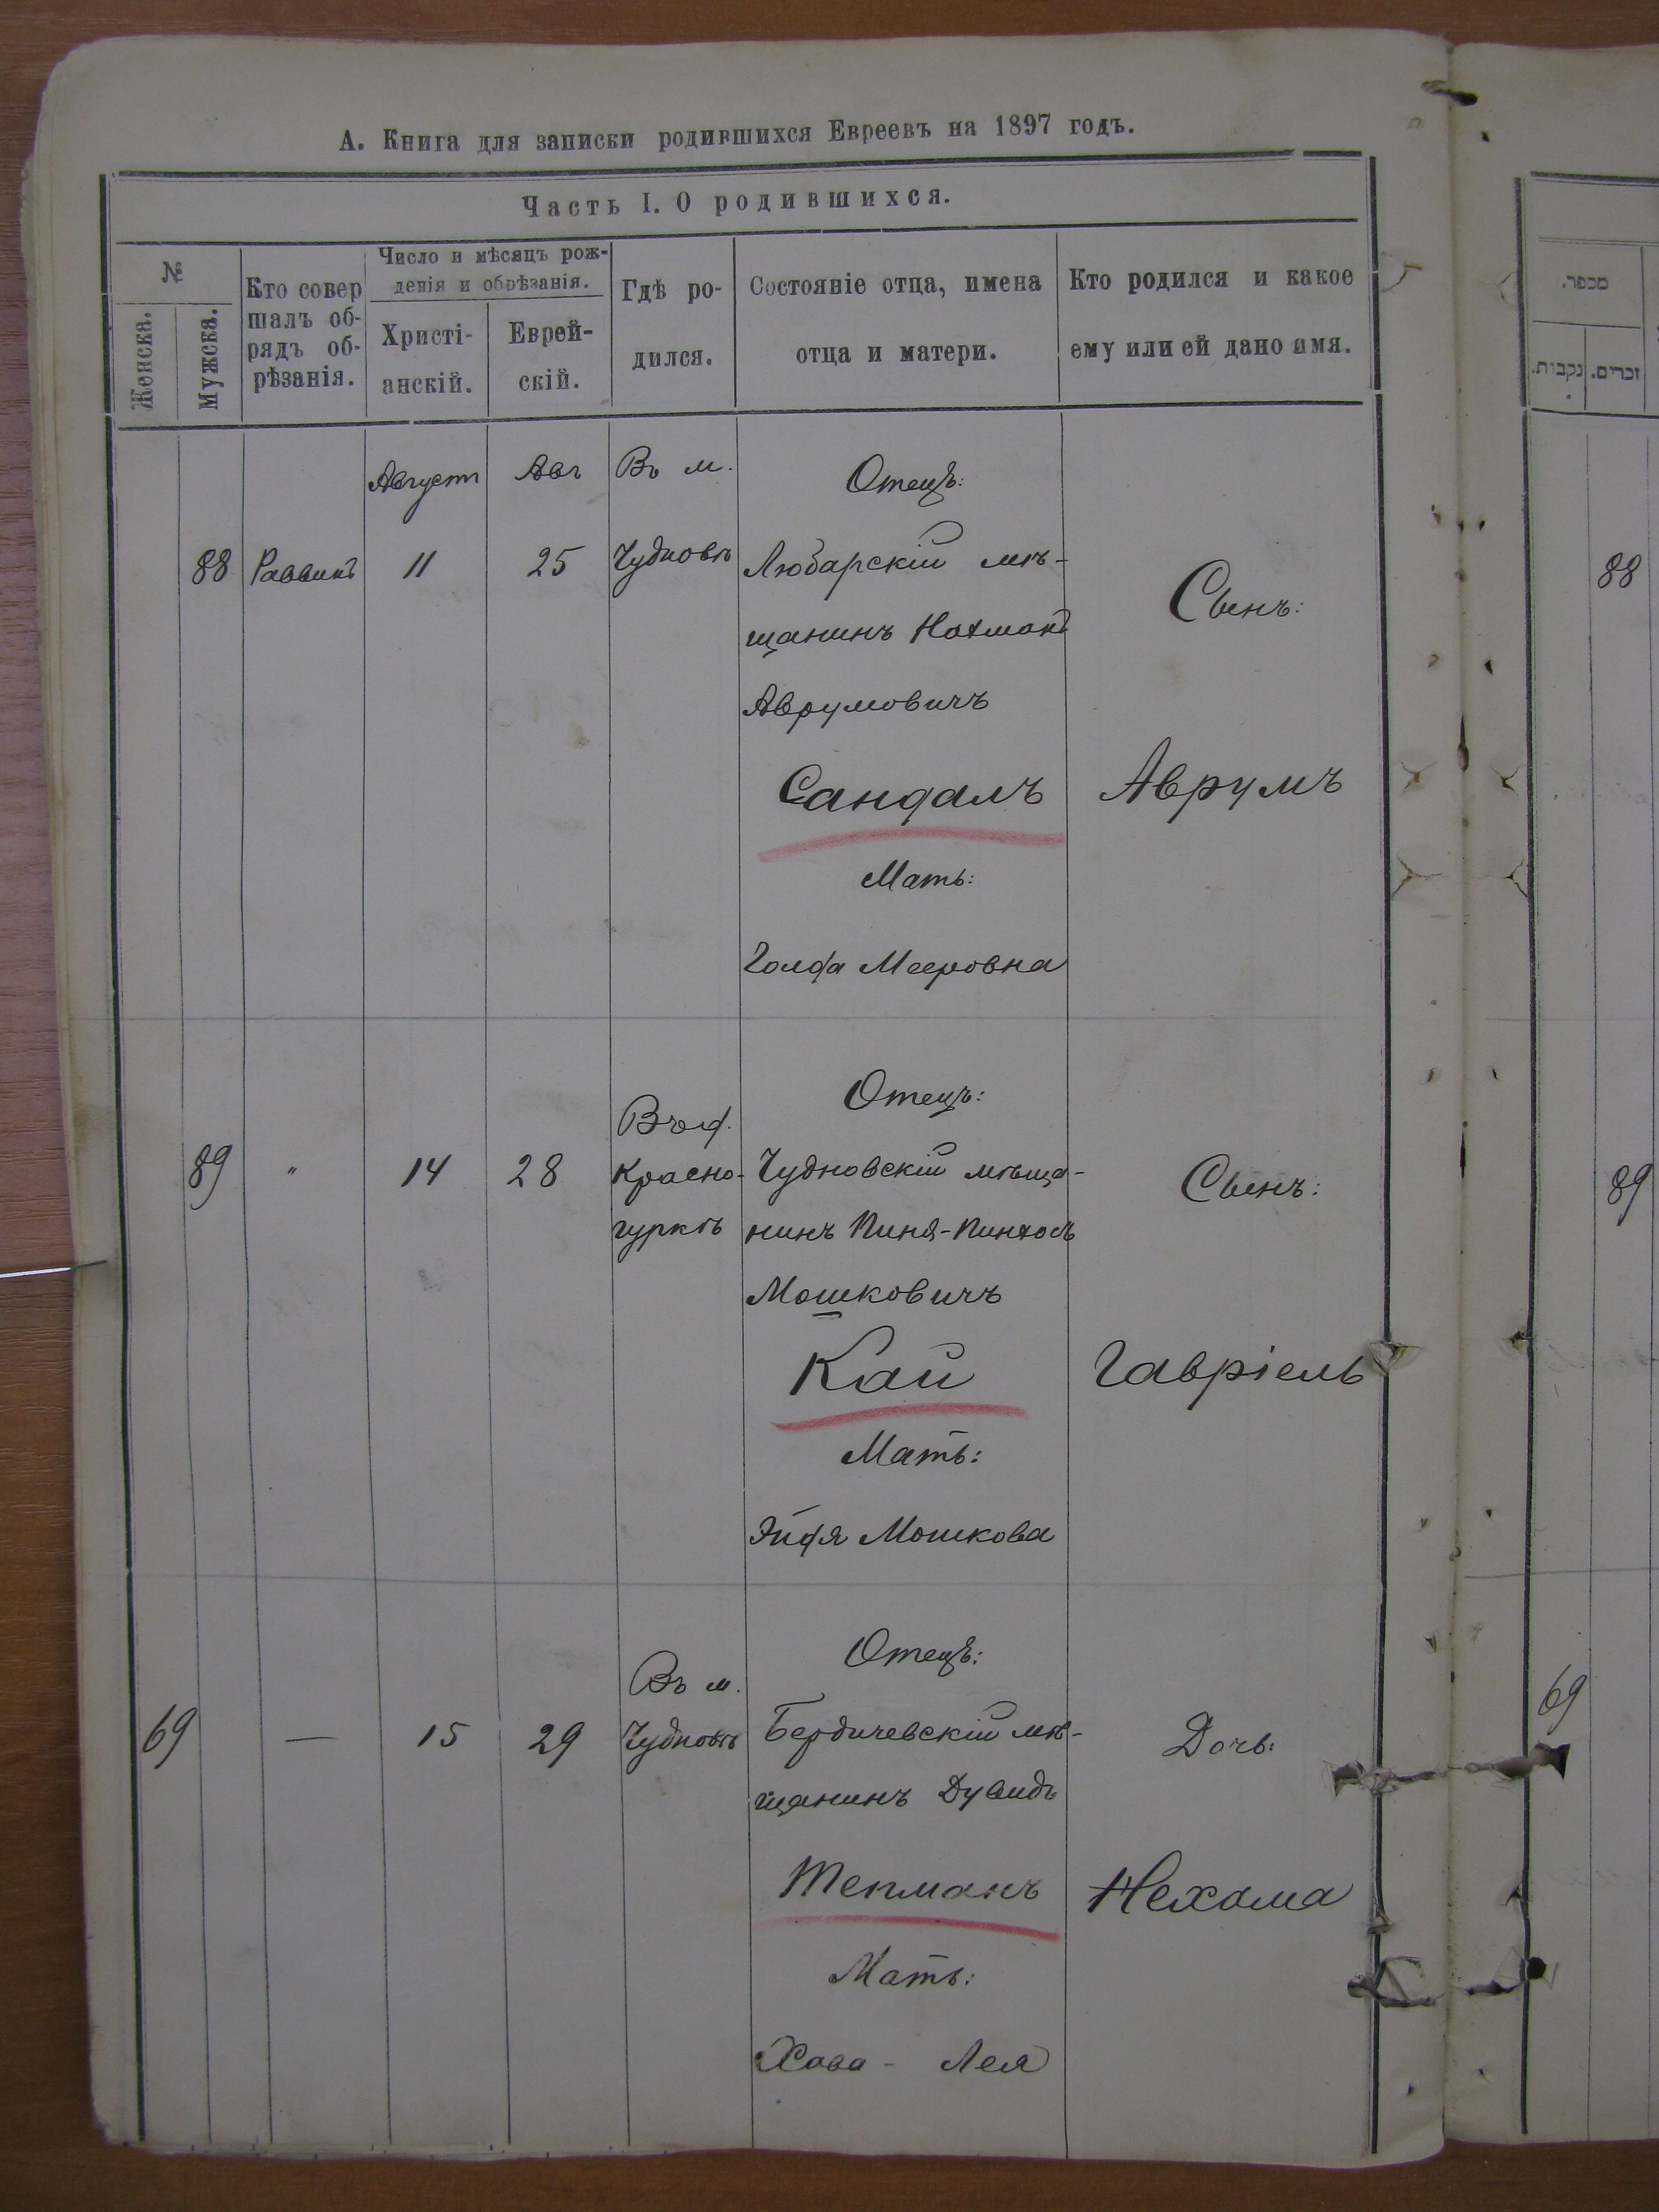 А. Книга для записки родившихся Евреевъ на 1897 годъ.
Часть I. О родившихся.
№
Женска.
Мужска.
Кто совер
шалъ об-
рядъ об-
рѣзанія.
Число и мѣсяцъ рож-
денія и обрѣзанія.
Христі-
анскій.
Еврей-
скій.
Гдѣ ро-
дился.
Состояніе отца, имена
отца и матери.
Кто родился и какое
ему или ей дано имя.
מכפר.
נקבות.
זכרים.
88
Раввинъ
Августъ
11
Авъ
25
Въ м.
Чудновѣ
Отецъ:
Любарскій мѣ-
щанинъ Нахманъ
Аврумовичъ
Сандалъ
Мать:
Голда Мееровна
Сынъ:
Аврумъ
88
89
"
14
28
Въ д.
Красно-
гуркѣ
Отецъ:
Чудновскій мѣща-
нинъ Пиня-Пинхосъ
Мошковичъ
Кай
Мать:
Эйдя Мошкова
Сынъ:
Гавріель
89
69
—
15
29
Въ м.
Чудновѣ
Отецъ:
Бердичевскій мѣ-
щанинъ Дувидъ
Тепманъ
Мать:
Хава - Лея
Дочь:
Нехама
69